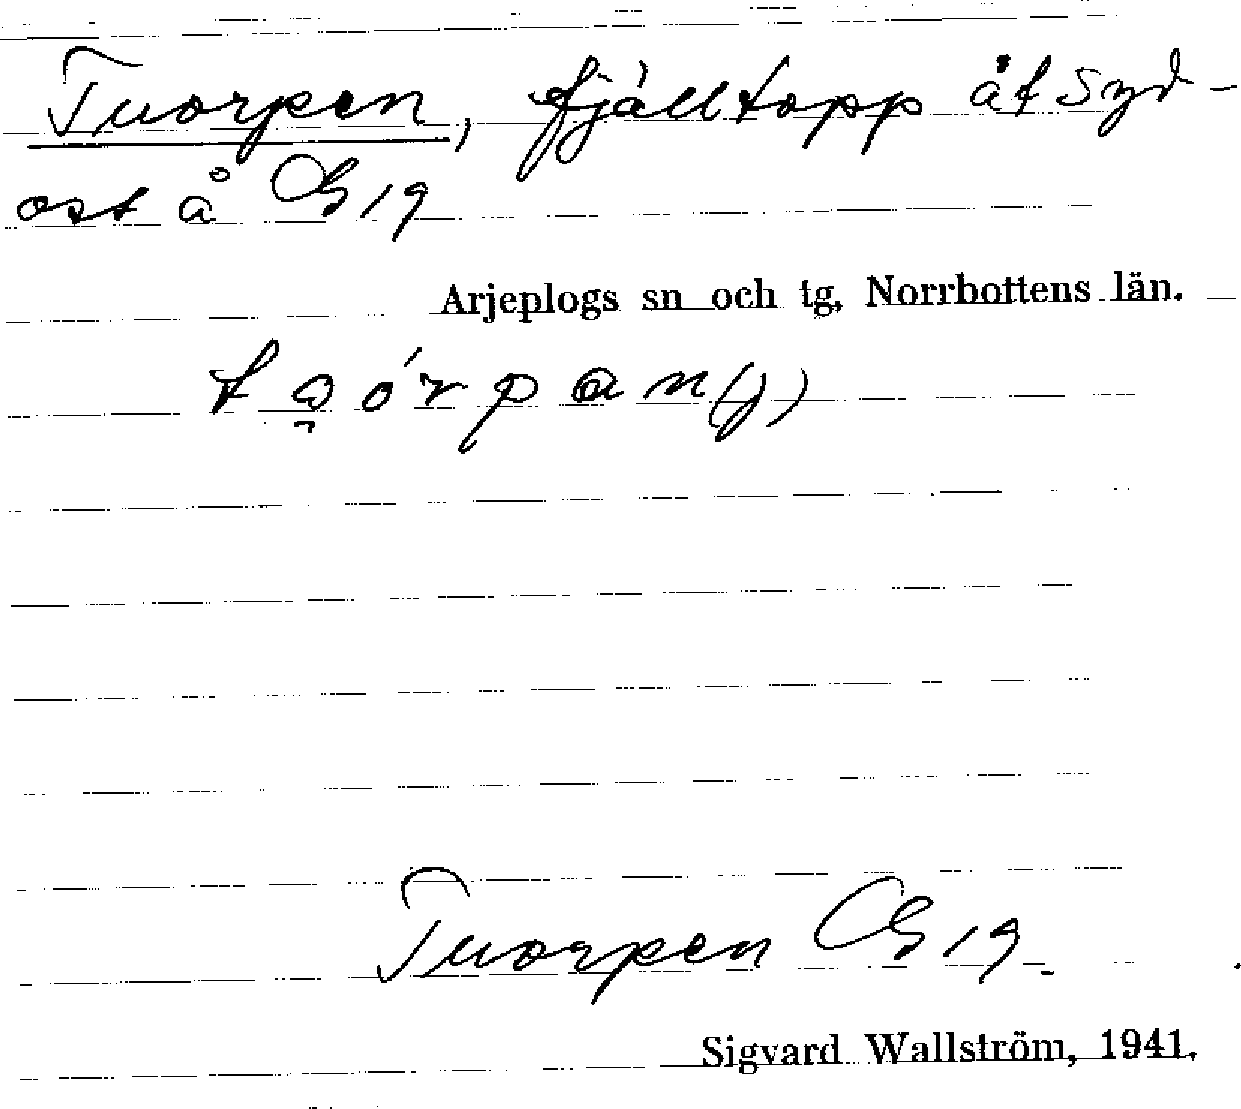 Tuorpen, fjälltopp åt syd-
ost å GS 19
Arjeplogs sn och tg, Norrbottens län.
Tuorpen GS 19
Sigvard Wallström, 1941.